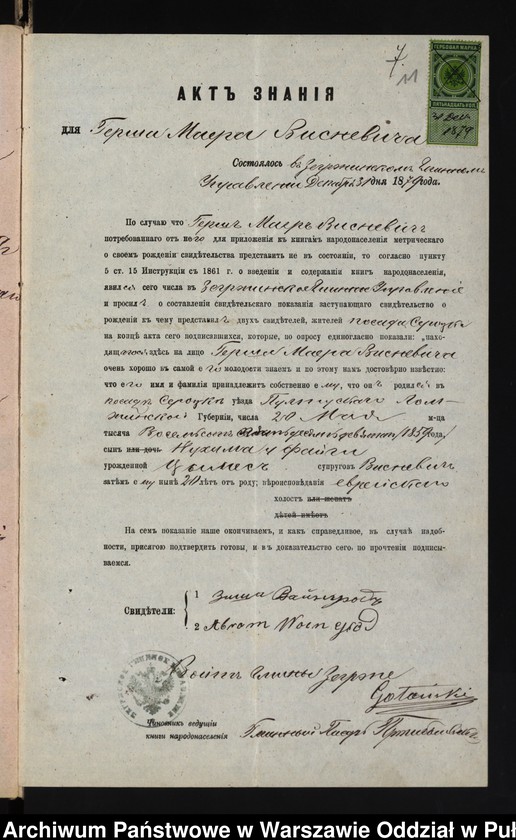 7.
11
ГЕРБОВАЯ МАРКА
ПЯТЬНАДЦАТЬ КОП.
31 Дек.
1879
АКТЪ ЗНАНІЯ
для Герша Маера Висневича
Состоялось въ Зегржинскомъ Гминномъ
Управленіи Декабря 31 дня 1879 года.
По случаю что Гершъ Маеръ Висневичъ
потребованнаго отъ него для приложенія къ книгамъ народонаселенія метрическаго
о своемъ рожденіи свидѣтельства представить не въ состояніи, то согласно пункту
5 ст. 15 Инструкціи съ 1861 г. о введеніи и содержаніи книгъ народонаселенія,
явился сего числа въ Зегржинское Гминное Управленіе
и просилъ о составленіи свидѣтельскаго показанія заступающаго свидѣтельство о
рожденіи къ чему представилъ двухъ свидѣтелей, жителей посада Сероцка
на концѣ акта сего подписавшихся, которые, по опросу единогласно показали: „находящагося
здѣсь на лицо Герша Маера Висневича
очень хорошо въ самой его молодости знаемъ и по этому намъ достовѣрно извѣстно:
что его имя и фамилія принадлежитъ собственно ему, что онъ родился въ
посадѣ Сероцкѣ уѣзда Пултускаго Ломжинской
Губерніи, числа 20 Мая м-ца
тысяча Восемьсотъ пятьдесятъ девятаго /1859 года/
сынъ или дочь Нухима и Файги
урожденной супруговъ Висневичъ
затѣмъ ему нынѣ 20 лѣтъ отъ роду; вѣроисповѣданія еврейскаго
холостъ или женатъ
дѣтей имѣетъ
На семъ показаніе наше окончиваемъ, и какъ справедливое, въ случаѣ надобности,
присягою подтвердить готовы, и въ доказательство сего по прочтеніи подписываемся.
Свидѣтели:
1 Зыша Вайнгродъ
2 Abram Woingrod
Войтъ Гмины Зегрже
Чиновникъ ведущій
книги народонаселенія
Гминный Писарь
Archiwum Państwowe w Warszawie Oddział w Puł